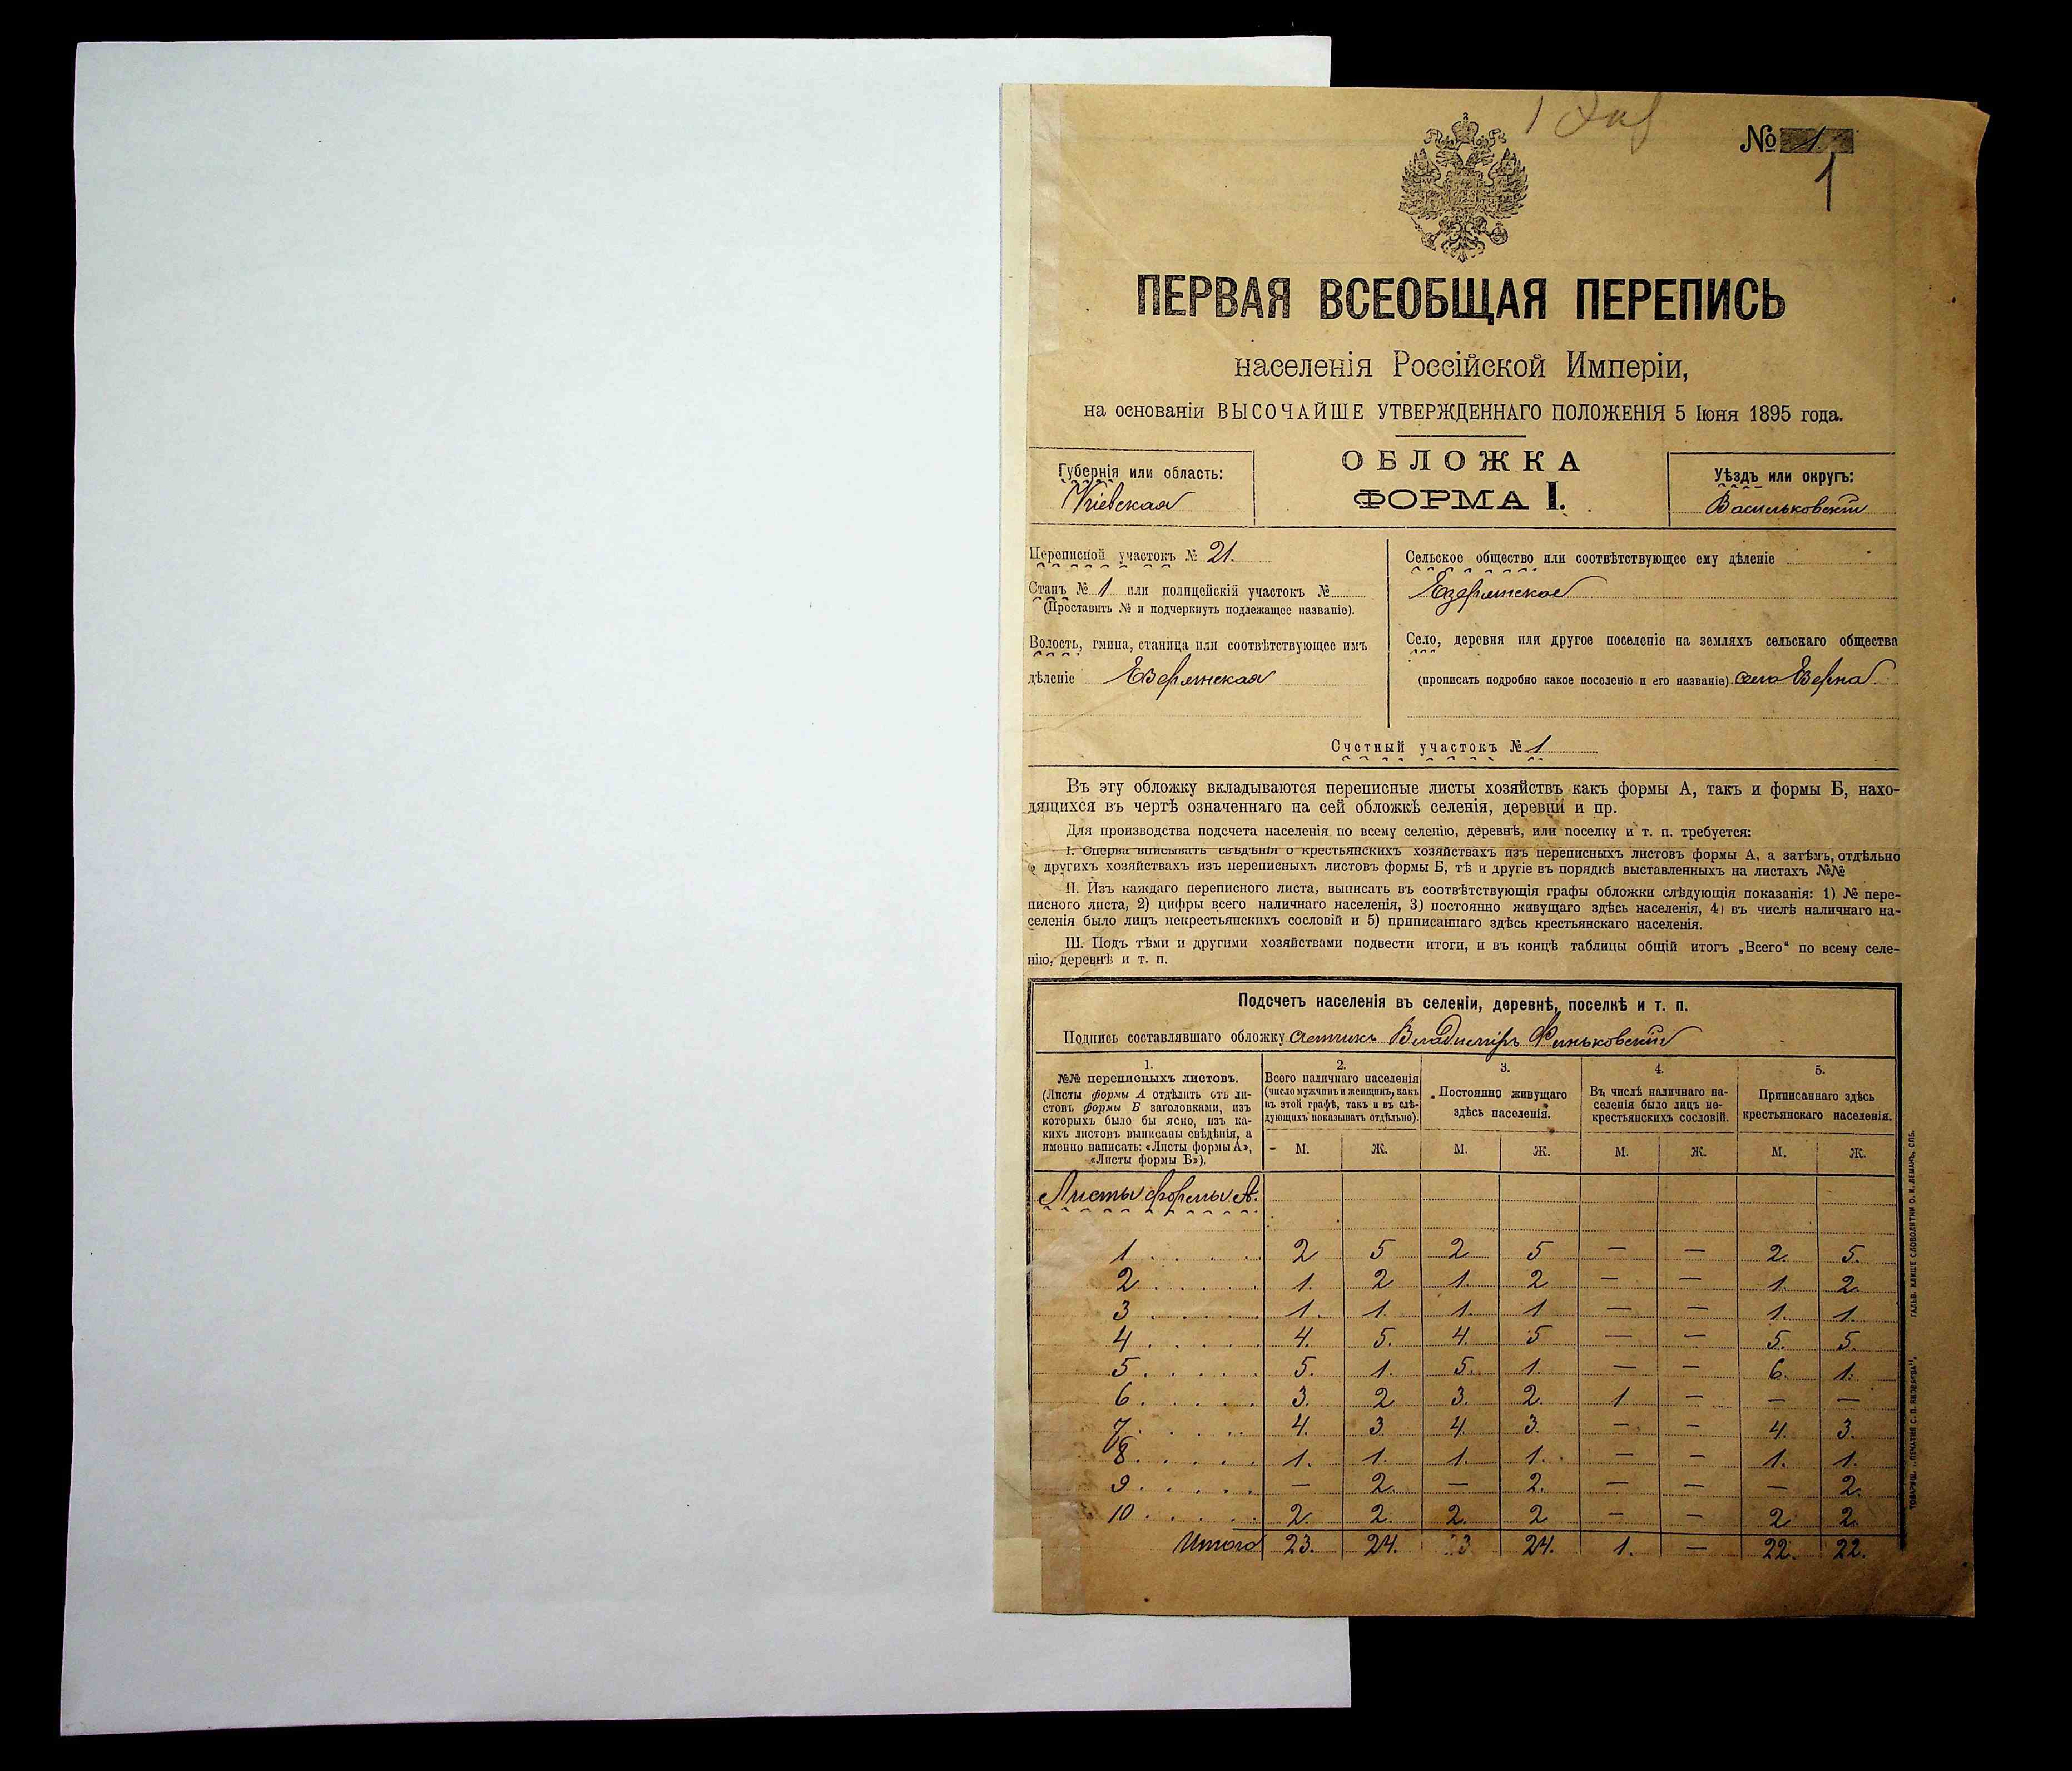 № 1
1
ПЕРВАЯ ВСЕОБЩАЯ ПЕРЕПИСЬ
населенія Россійской Имперіи,
на основаніи ВЫСОЧАЙШЕ УТВЕРЖДЕННАГО ПОЛОЖЕНІЯ 5 Іюня 1895 года.
Губернія или область:
Кіевская
ОБЛОЖКА
ФОРМА I.
Уѣздъ или округъ:
Васильковскій
Переписной участокъ № 21.
Станъ № 1 или полицейскій участокъ №
(Проставить № и подчеркнуть подлежащее названіе).
Волость, гмина, станица или соотвѣтствующее имъ
дѣленіе Езерянская
Сельское общество или соотвѣтствующее ему дѣленіе
Езерянское
Село, деревня или другое поселеніе на земляхъ сельскаго общества
(прописать подробно какое поселеніе и его названіе) село Езерна
Счетный участокъ № 1
Въ эту обложку вкладываются переписные листы хозяйствъ какъ формы А, такъ и формы Б, нахо-
дящихся въ чертѣ означеннаго на сей обложкѣ селенія, деревни и пр.
Для производства подсчета населенія по всему селенію, деревнѣ, или поселку и т. п. требуется:
I. Сперва вписывать свѣдѣнія о крестьянскихъ хозяйствахъ изъ переписныхъ листовъ формы А, а затѣмъ, отдѣльно
о другихъ хозяйствахъ изъ переписныхъ листовъ формы Б, тѣ и другіе въ порядкѣ выставленныхъ на листахъ №№
II. Изъ каждаго переписного листа, выписать въ соотвѣтствующія графы обложки слѣдующія показанія: 1) № пере-
писного листа, 2) цифры всего наличнаго населенія, 3) постоянно живущаго здѣсь населенія, 4) въ числѣ наличнаго на-
селенія было лицъ некрестьянскихъ сословій и 5) приписаннаго здѣсь крестьянскаго населенія.
III. Подъ тѣми и другими хозяйствами подвести итоги, и въ концѣ таблицы общій итогъ „Всего“ по всему селе-
нію, деревнѣ и т. п.
Подсчетъ населенія въ селеніи, деревнѣ, поселкѣ и т. п.
Подпись составлявшаго обложку Владиміръ Финьковскій
1.
№№ переписныхъ листовъ.
(Листы формы А отдѣлить отъ ли-
стовъ формы Б заголовками, изъ
которыхъ было бы ясно, изъ ка-
кихъ листовъ выписаны свѣдѣнія, а
именно написать: «Листы формы А»,
«Листы формы Б»).
2.
Всего наличнаго населенія
(число мужчинъ и женщинъ, какъ
въ этой графѣ, такъ и въ слѣ-
дующихъ показывать отдѣльно).
3.
Постоянно живущаго
здѣсь населенія.
4.
Въ числѣ наличнаго на-
селенія было лицъ не-
крестьянскихъ сословій.
5.
Приписаннаго здѣсь
крестьянскаго населенія.
М. Ж. М. Ж. М. Ж. М. Ж.
Листы формы А.
1 . . . . . 2 5 2 5 — — 2. 5.
2 . . . . . 1. 2 1. 2 — — 1. 2.
3 . . . . . 1. 1. 1. 1 — — 1. 1.
4 . . . . . 4. 5. 4. 5 — — 5. 5.
5 . . . . . 5. 1. 5. 1. — — 6. 1.
6 . . . . . 3. 2 3. 2. 1 — — —
7 . . . . . 4. 3. 4. 3. — — 4. 3.
8 . . . . . 1. 1. 1. 1. — — 1. 1.
9 . . . . . — 2. — 2. — — — 2.
10 . . . . . 2. 2. 2. 2 — — 2. 2.
Итого 23. 24. 23 24. 1. — 22. 22.